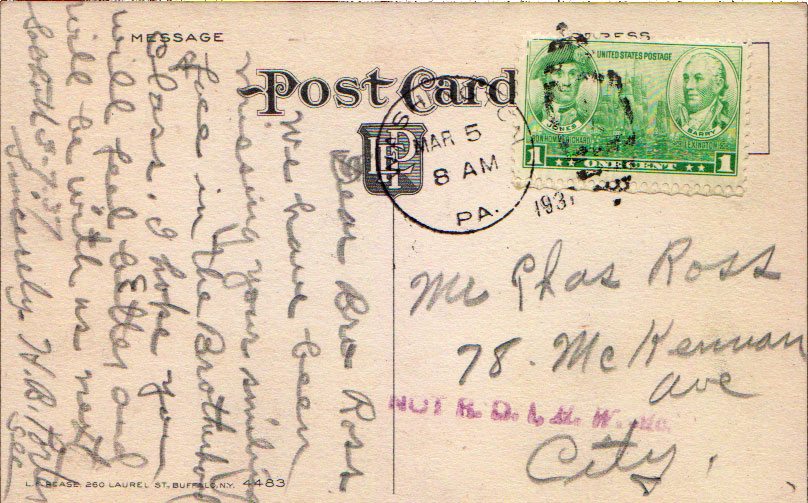 MESSAGE
Post Card
Dear Bro Ross
We have been
missing your smiling
face in the Brotherhood
Class. I hope you
will feel better and
will be with us next
Sabbath 3-7-37
Sincerely, H. B.
Sec
L.K. BEASE, 260 LAUREL ST, BUFFALO, N.Y. 4483
WASHINGTON
MAR 5
8 AM
1937
PA.
UNITED STATES POSTAGE
JONES
BARRY
BONHOMME RICHARD
LEXINGTON
1 ONE CENT 1
Mr Chas Ross
78. McKennan
Ave
City.